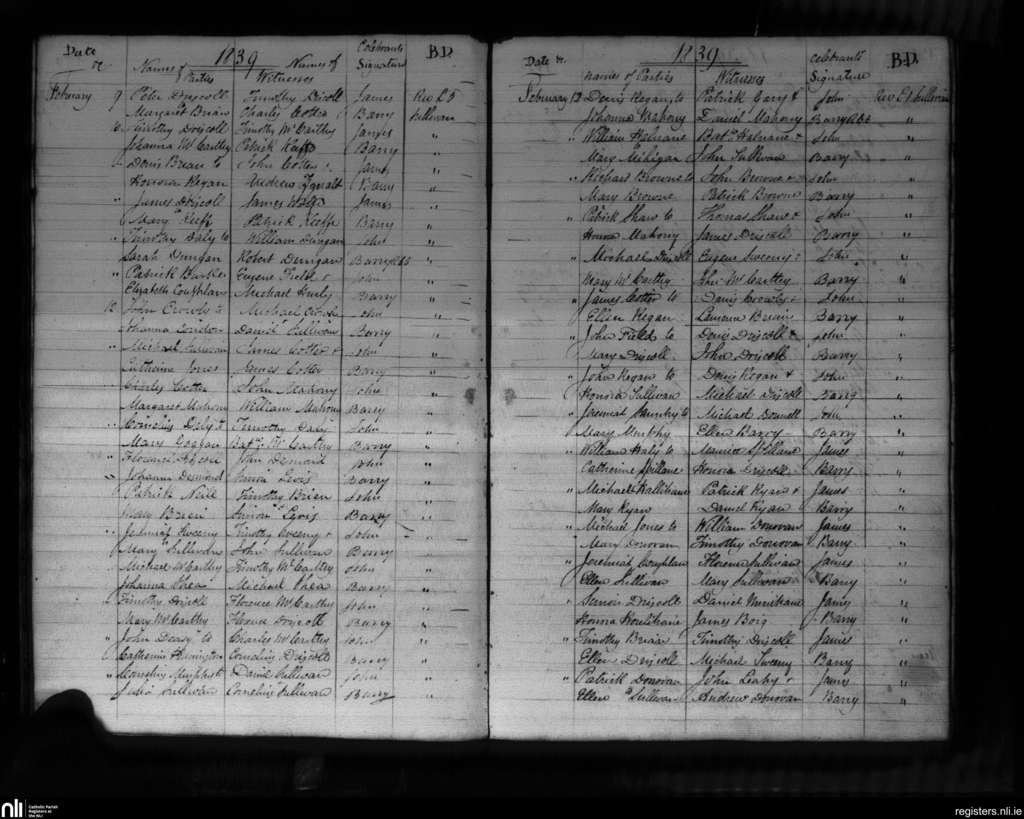 Date 1839 Celebrants B.P.
Names of Parties Names of Witnesses Signature
February 9 Peter Driscoll Timothy Driscoll James Rev
Margaret Brian Charles Cotter Barry Sullivan
10 Timothy Driscoll Timothy McCarthy James "
Johanna McCarthy Patrick Keeffe Barry "
" Denis Brian to John Cotter James "
Honora Regan Andrew Barry "
" James Driscoll James James "
Mary Keeffe Patrick Keeffe Barry "
" Timothy Daly to William Dungan John "
Sarah Dungan Robert Dungan Barry "
" Patrick Eugene John "
Elizabeth Coughlan Michael Barry "
12 John Crowly to Michael John "
Johanna Daniel Sullivan Barry "
" Michael Sullivan James Cotter & John "
Catherine Jones James Cotter Barry "
" Charles Cotter John Mahony John "
Margaret Mahony William Mahony Barry "
" Cornelius Daly to Timothy Daly John "
Mary Batw McCarthy Barry "
" Florence Driscoll John Desmond John "
Johanna Desmond Lewis Barry "
" Patrick Neill Timothy Brien John "
Mary Brien Barry "
" Jeremiah Sweeny Timothy Sweeny & John "
Mary Sullivan John Sullivan Barry "
" Michael McCarthy Timothy McCarthy John "
Johanna Shea Michael Shea Barry "
" Timothy Driscoll Florence McCarthy John "
Mary McCarthy Driscoll Barry "
" John Deasy to Charles McCarthy John "
Catherine Cornelius Driscoll Barry "
" Daniel Sullivan John "
Julia Sullivan Cornelius Sullivan Barry "
Date 1839 Celebrants B.P.
Names of Parties Witnesses Signature
February 12 Denis Regan to Patrick Cary & John Rev Sullivan
Johanna Mahony Daniel Mahony Barry "
" William Batw & John "
Mary John Sullivan Barry "
" Michael Browne to John Browne & John "
Mary Browne Patrick Browne Barry "
" Patrick Shaw to Thomas Shaw & John "
Honora Mahony James Driscoll Barry "
" Michael Driscoll Eugene Sweeny & John "
Mary McCarthy John McCarthy Barry "
" James Cotter to Denis Crowly & John "
Ellen Regan Brien Barry "
" John Field to Denis Driscoll & John "
Mary Driscoll John Driscoll Barry "
" John Regan to Denis Regan & John "
Honora Sullivan Michael Driscoll Barry "
" Jeremiah Murphy to Michael Donnell John "
Mary Murphy Ellen Barry Barry "
" William Haly to Maurice Spillane James "
Catherine Spillane Honora Driscoll Barry "
" Michael Patrick Ryan & James "
Mary Ryan Daniel Ryan Barry "
" Michael Jones to William Donovan James "
Mary Donovan Timothy Donovan Barry "
" Jeremiah Coughlan Florence Sullivan James "
Ellen Sullivan Mary Sullivan Barry "
" Driscoll Daniel James "
Honora James Barry "
" Timothy Brian Timothy Driscoll James "
Ellen Driscoll Michael Sweeny Barry "
" Patrick Donovan John Leahy & James "
Ellen Sullivan Andrew Donovan Barry "
nli Catholic Parish
Registers at
the NLI
registers.nli.ie